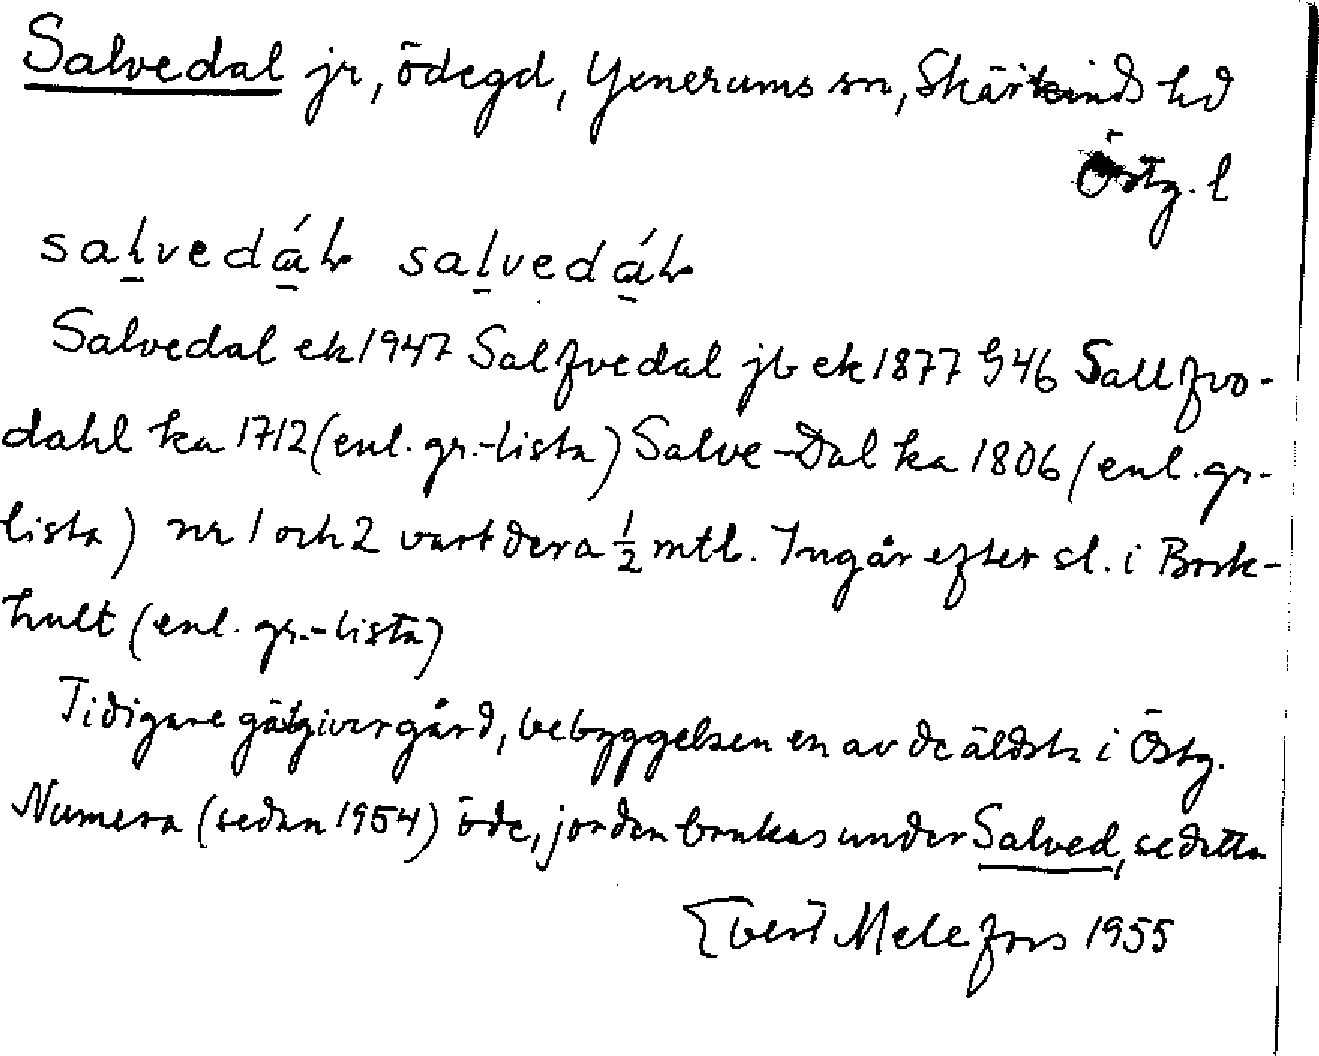 Salvedal jr, ödegd, Yxnerums sn, Skärkinds hd
Östg. l
salvedáL salvedáL
Salvedal ek 1947 Salfvedal jb ek 1877 G46 Sallfvo-
dahl ka 1712 (enl. gr.-lista) Salve-Dal ka 1806 (enl. gr-
lista) nr 1 och 2 vartdera ½ mtl. Ingår efter sl. i Bork-
hult (enl. gr.-lista)
Tidigare gästgivergård, bebyggelsen en av de äldsta i Östg.
Numera (sedan 1954) öde, jorden brukas under Salved, se detta
Evert Melefors 1955